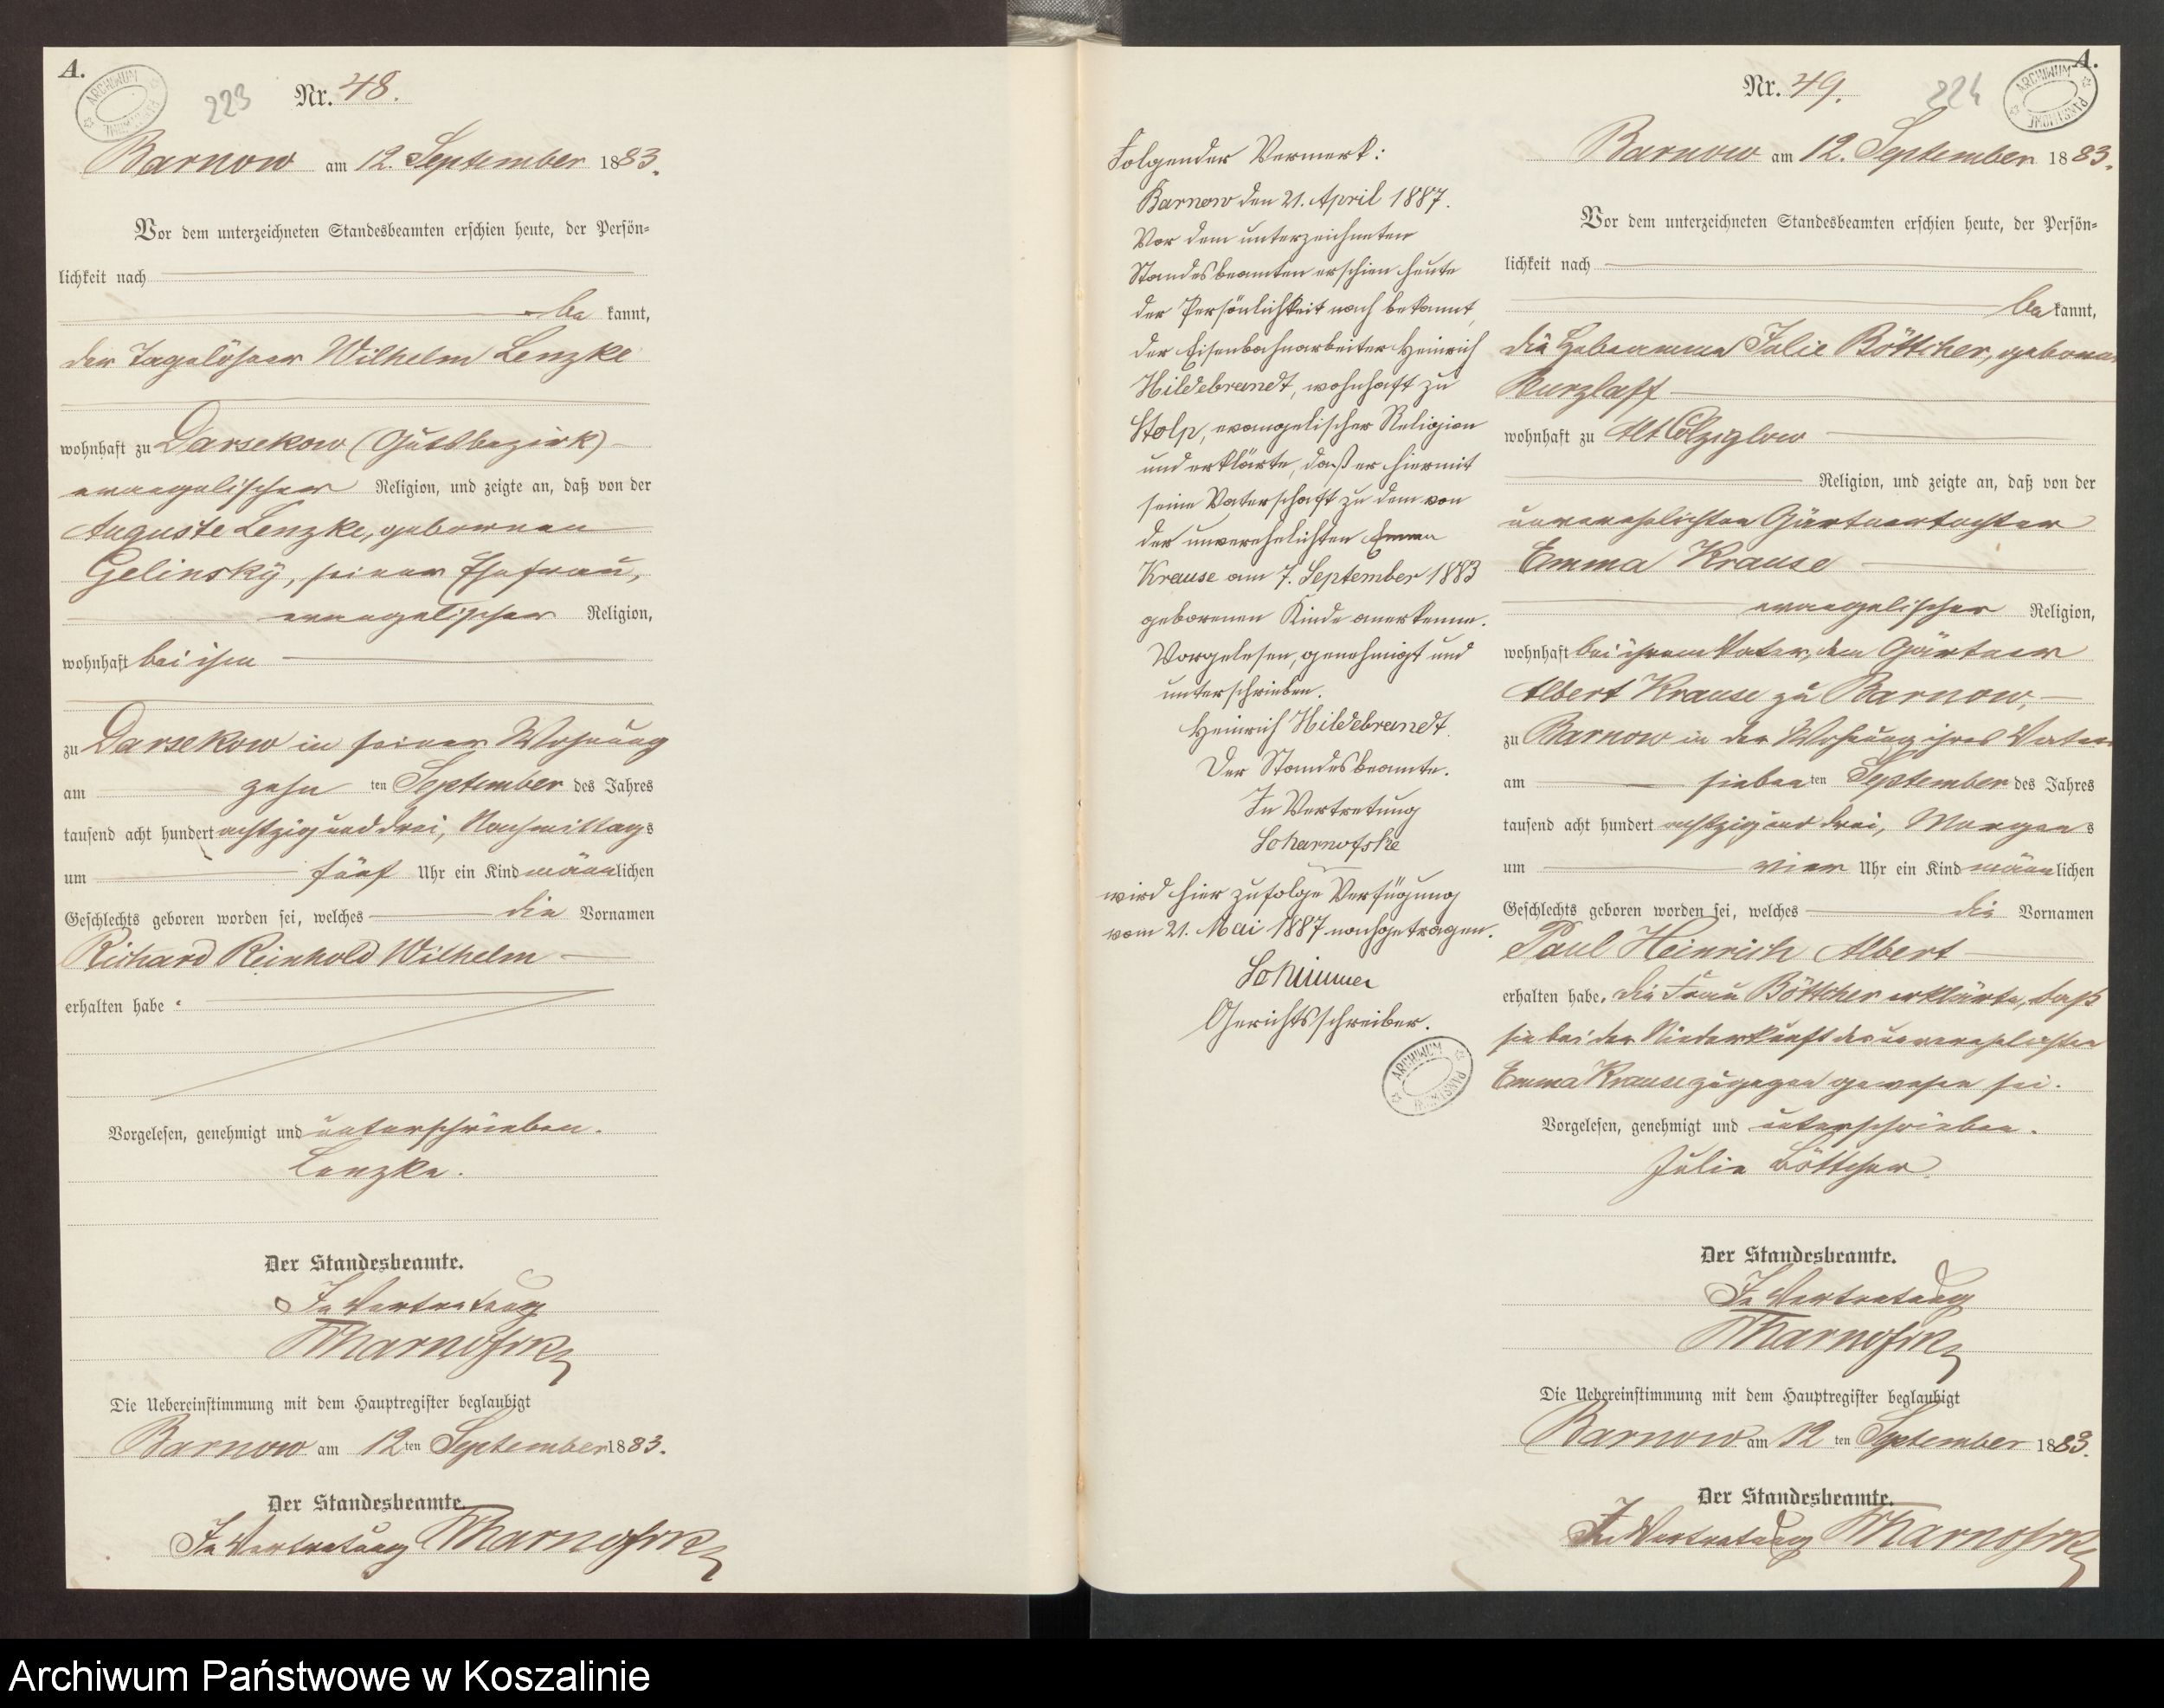 A.
ARCHIWUM PAŃSTWOWE
223
Nr. 48.
Barnow am 12. September 1883.
Vor dem unterzeichneten Standesbeamten erschien heute, der Persön-
lichkeit nach
be kannt,
der Tagelöhner Wilhelm Lenzke
wohnhaft zu Darsekow (Gutsbezirk)
evangelischer Religion, und zeigte an, daß von der
Auguste Lenzke, gebornen
Gelinsky, seiner Ehefrau,
evangelischer Religion,
wohnhaft bei ihm
zu Darsekow in seiner Wohnung
am zehn ten September des Jahres
tausend acht hundert achtzig und drei, Nachmittags
um fünf Uhr ein Kind männlichen
Geschlechts geboren worden sei, welches die Vornamen
Richard Reinhold Wilhelm
erhalten habe.
Vorgelesen, genehmigt und unterschrieben.
Lenzke.
Der Standesbeamte.
In Vertretung
Scharnofske
Die Uebereinstimmung mit dem Hauptregister beglaubigt
Barnow am 12 ten September 1883.
Der Standesbeamte.
In Vertretung Scharnofske
Folgender Vermerk:
Barnow den 21. April 1887.
Vor dem unterzeichneten
Standesbeamten erschien heute
der Persönlichkeit nach bekannt,
der Eisenbahnarbeiter Heinrich
Hildebrandt, wohnhaft zu
Stolp, evangelischer Religion
und erklärte, daß er hiermit
seine Vaterschaft zu dem von
der unverehelichten Emma
Krause am 7. September 1883
geborenen Kinde anerkenne.
Vorgelesen, genehmigt und
unterschrieben.
Heinrich Hildebrandt.
Der Standesbeamte.
In Vertretung
Scharnofske
wird hier zufolge Verfügung
vom 21. Mai 1887 nachgetragen.
Gerichtsschreiber.
ARCHIWUM PAŃSTWOWE
A.
ARCHIWUM PAŃSTWOWE
224
Nr. 49.
Barnow am 12. September 1883.
Vor dem unterzeichneten Standesbeamten erschien heute, der Persön-
lichkeit nach
be kannt,
die Hebeamme Julie Böttcher, geborne
Kurzlaff
wohnhaft zu Alt Colziglow
Religion, und zeigte an, daß von der
unverehelichten Gärtnertochter
Emma Krause
evangelischer Religion,
wohnhaft bei ihrem Vater, dem Gärtner
Albert Krause zu Barnow,
zu Barnow in der Wohnung ihres Vaters
am sieben ten September des Jahres
tausend acht hundert achtzig und drei, Morgens
um vier Uhr ein Kind männlichen
Geschlechts geboren worden sei, welches die Vornamen
Paul Heinrich Albert
erhalten habe. Die Frau Böttcher erklärte, daß
sie bei der Niederkunft der unverehelichten
Emma Krause zugegen gewesen sei.
Vorgelesen, genehmigt und unterschrieben.
Julie Böttcher
Der Standesbeamte.
In Vertretung
Scharnofske
Die Uebereinstimmung mit dem Hauptregister beglaubigt
Barnow am 12 ten September 1883.
Der Standesbeamte.
In Vertretung Scharnofske
Archiwum Państwowe w Koszalinie